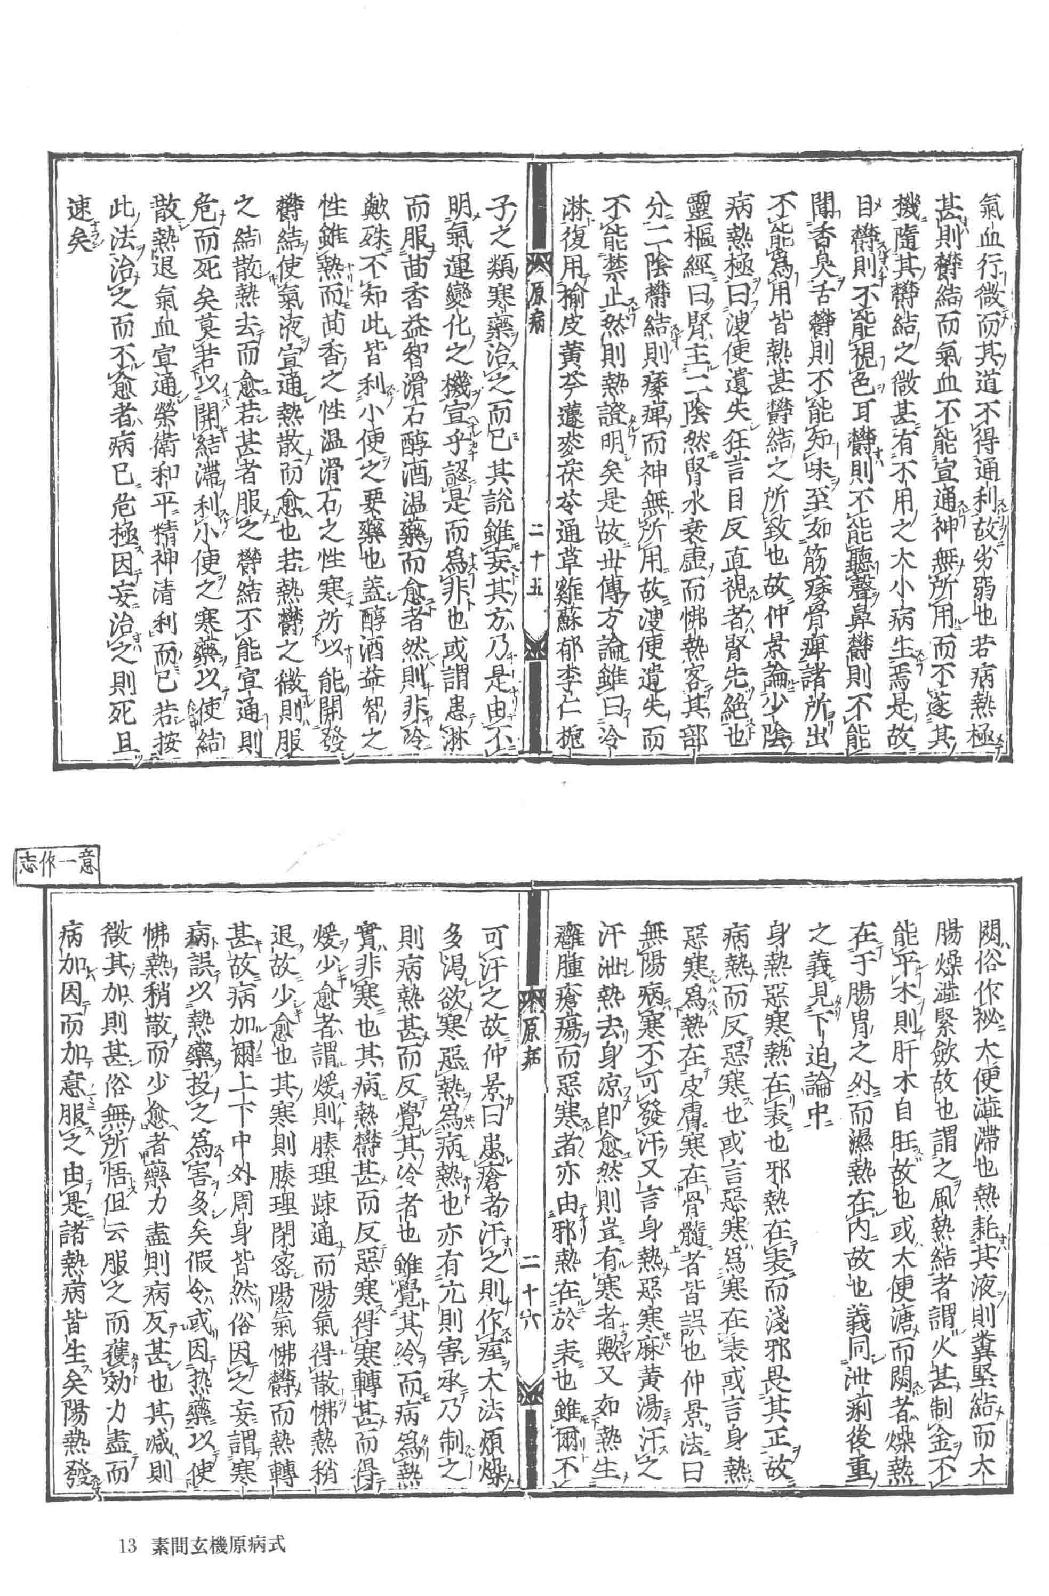 氣血行微而其道不得通利故劣弱也若病熱極
甚則鬱結而氣血不能宣通神無所用而不遂其
機隨其鬱結之微甚有不用之大小病生焉是故
目鬱則不能視色耳鬱則不能聽聲鼻鬱則不能
聞香臭舌鬱則不能知味至如筋痿骨痺諸所出
不能爲用皆熱甚鬱結之所致也故仲景論少陰
病熱極曰溲便遺失狂言目反直視者腎先絕也
靈樞經曰腎主二陰然腎水衰虛而怫熱客其部
分二陰鬱結則痿痺而神無所用故溲便遺失而
不能禁止然則熱證明矣是故世傳方論雖曰冷
淋復用榆皮黃芩蘧麥茯苓通草雞蘇郁李仁梔
原病
二十五
子之類寒藥治之而已其說雖妄其方乃是由不
明氣運變化之機宜乎認是而爲非也或謂患淋
而服茴香益智滑石醇酒溫藥而愈者然則非冷
歟殊不知此皆利小便之要藥也蓋醇酒益智之
性雖熱而茴香之性溫滑石之性寒所以能開發
鬱結使氣液宣通熱散而愈也若熱鬱之微則服
之結散熱去而愈若甚者服之鬱結不能宣通則
危而死矣莫若以開結滯利小便之寒藥以使結
散熱退氣血宣通榮衛和平精神清利而已若按
此法治之而不愈者病已危極因妄治之則死且
速矣
閟俗作祕大便澁滯也熱耗其液則糞堅結而大
腸燥澁緊斂故也謂之風熱結者謂火甚制金不
能平木則肝木自旺故也或大便溏而閟者燥熱
在于腸胃之外而濕熱在內故也義同泄痢後重
之義見下迫論中
身熱惡寒熱在表也邪熱在表而淺邪畏其正故
病熱而反惡寒也或言惡寒爲寒在表或言身熱
惡寒爲熱在皮膚寒在骨髓者皆誤也仲景法曰
無陽病寒不可發汗又言身熱惡寒麻黃湯汗之
汗泄熱去身涼卽愈然則豈有寒者歟又如熱生
癰腫瘡瘍而惡寒者亦由邪熱在於表也雖爾不
原病
二十六
可汗之故仲景曰患瘡者汗之則作痙大法煩燥
多渴欲寒惡熱爲病熱也亦有亢則害承乃制之
則病熱甚而反覺其冷者也雖覺其冷而病爲熱
實非寒也其病熱鬱甚而反惡寒得寒轉甚而得
煖少愈者謂煖則腠理疎通而陽氣得散怫熱稍
退故少愈也其寒則腠理閉密陽氣怫鬱而熱轉
甚故病加爾上下中外周身皆然俗因之妄謂寒
病誤以熱藥投之爲害多矣假令或因热藥以使
怫熱稍散而少愈者藥力盡則病反甚也其减則
微其加則甚俗無所悟但云服之而獲効力盡而
病加因而加意服之由是諸熱病皆生矣陽熱發
意一作志
13 素問玄機原病式